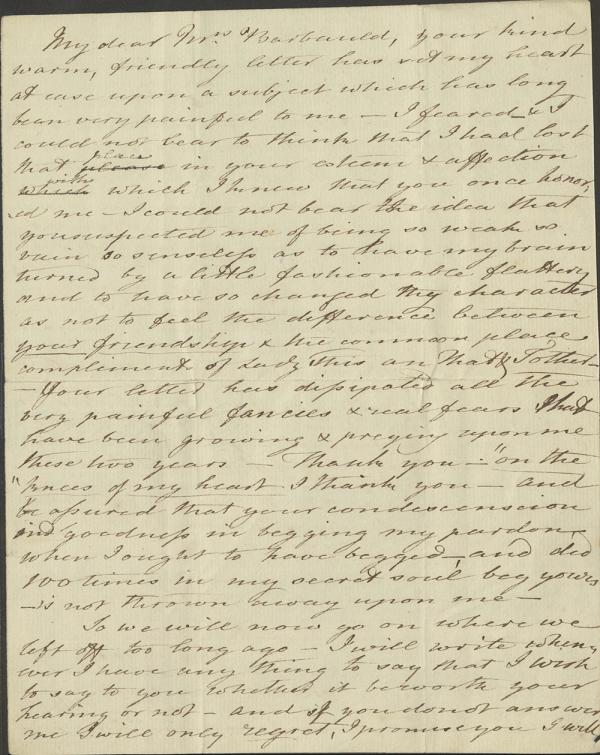 My dear Mrs Barbauld, your kind
warm, friendly letter has set my heart
at ease upon a subject which has long
been very painful to me — I feared & I
could not bear to think that I had lost
that please place in your esteem & affection
which with which I knew that you once honor,
ed me — I could not bear the idea that
you suspected me of being so weak so
vain so senseless as to have my brain
turned by a little fashionable flattery
and to have so changed my character
as not to feel the difference between
your friendship & the common place
compliments of Lady This an That & T'other —
— Your letter has dissipated all the
very painful fancies & real fears that
have been growing & preying upon me
these two years — Thank you — "on the
"knees of my heart I thank you — and
be assured that your condescension
and goodness in begging my pardon
when I ought to have begged, and did
100 times in my secret soul beg yours
— is not thrown away upon me —
So we will now go on where we
left off too long ago — I will write when,
ever I have any thing to say that I wish
to say to you whether it be worth your
hearing or not — and if you do not answer
me I will only regret, I promise you I will